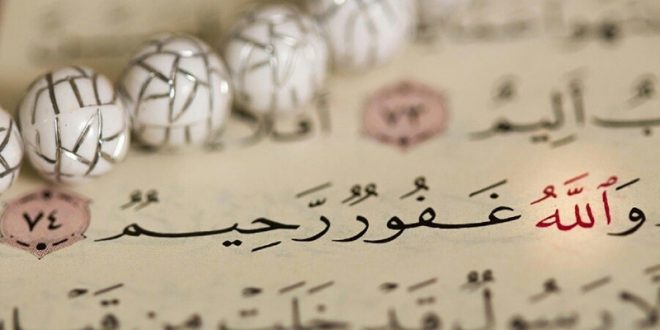 بٌ أَلِيمٌ ٧٣ أَفَلَا
وَٱللَّهُ غَفُورٌ رَّحِيمٌ ٧٤
لَّا رَسُولٌ قَدْ خَلَتْ مِن قَبْلِ